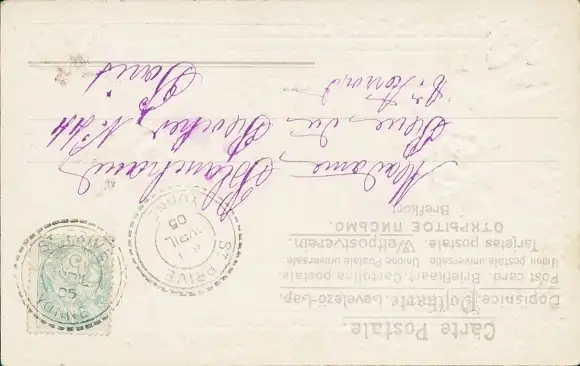 Carte Postale.
Dopisnice. Postkarte. Levelező-Lap.
Post card. Briefkaart. Cartolina postale
Union postale universelle. Unione Postale universale
Tarjetas postale. Weltpostverein.
ОТКРЫТОЕ ПИСЬМО.
Brefkort
ST PRIVÉ
AVRIL
05
YONNE
AVRIL
05
Madame Blanchard
Rue du Rocher, N° 44
Paris